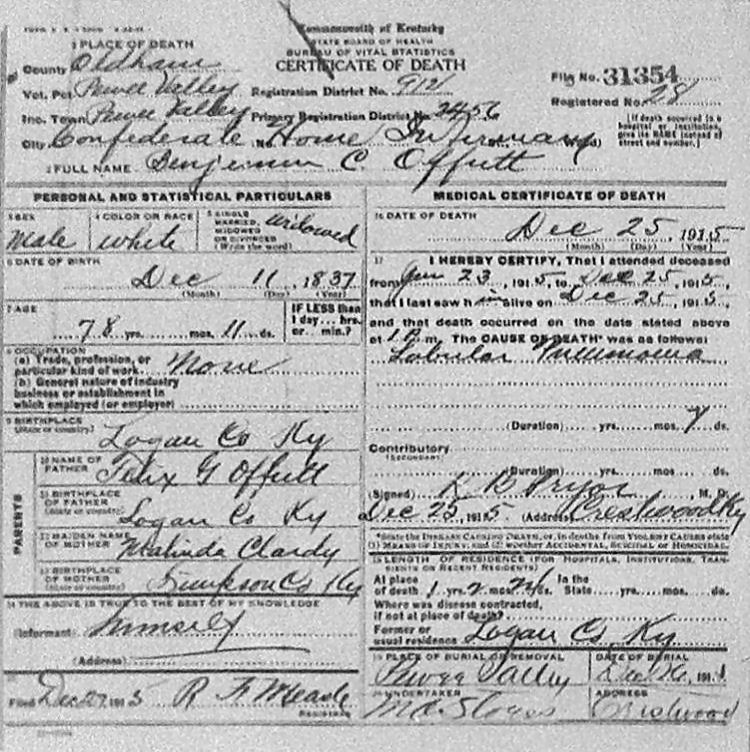 Commonwealth of Kentucky
STATE BOARD OF HEALTH
BUREAU OF VITAL STATISTICS
CERTIFICATE OF DEATH
1 PLACE OF DEATH
County Oldham
Vot. Pct Pewee Valley Registration District No. 912
Inc. Town Pewee Valley Primary Registration District No. 2456
City Confederate Home Infirmary Ward)
File No. 31354
Registered No. 28
[If death occurred in a hospital or institution, give its NAME instead of street and number.]
2 FULL NAME Benjermin C. Offutt
PERSONAL AND STATISTICAL PARTICULARS
3 SEX Male
4 COLOR OR RACE white
5 SINGLE MARRIED, WIDOWED OR DIVORCED (Write the word) widowed
6 DATE OF BIRTH
Dec 11, 1837
(Month) (Day) (Year)
7 AGE
78 yrs. mos. 11 ds.
IF LESS than 1 day ... hrs. or ... min.?
8 OCCUPATION
(a) Trade, profession, or particular kind of work None
(b) General nature of industry business or establishment in which employed (or employer)
9 BIRTHPLACE (State or country) Logan Co Ky
PARENTS
10 NAME OF FATHER Felix G Offutt
11 BIRTHPLACE OF FATHER (State or country) Logan Co Ky
12 MAIDEN NAME OF MOTHER Malinda Clardy
13 BIRTHPLACE OF MOTHER (State or country) Simpson Co Ky
14 THE ABOVE IS TRUE TO THE BEST OF MY KNOWLEDGE
(Informant) himself
(Address)
Filed Dec 27, 1915 R F Meade
REGISTRAR
MEDICAL CERTIFICATE OF DEATH
16 DATE OF DEATH
Dec 25, 1915
(Month) (Day) (Year)
17 I HEREBY CERTIFY, That I attended deceased
from Jan 23, 1915, to Dec 25, 1915,
that I last saw him alive on Dec 25, 1915,
and that death occurred on the date stated above
at 1 P. m. The CAUSE OF DEATH* was as follows:
Lobular Pneumonia
(Duration) yrs. mos. 7 ds.
Contributory
(SECONDARY)
(Duration) yrs. mos. ds.
(Signed) R B Pryor, M. D.
Dec 25, 1915 (Address) Crestwood Ky
*State the DISEASE CAUSING DEATH, or, in deaths from VIOLENT CAUSES state (1) MEANS OF INJURY; and (2) whether ACCIDENTAL, SUICIDAL or HOMICIDAL.
18 LENGTH OF RESIDENCE (FOR HOSPITALS, INSTITUTIONS, TRANSIENTS OR RECENT RESIDENTS)
At place of death 1 yrs. 2 mos. 24 ds. In the State yrs. mos. ds.
Where was disease contracted, if not at place of death?
Former or usual residence Logan Co Ky
19 PLACE OF BURIAL OR REMOVAL Pewee Valley
DATE OF BURIAL Dec 26, 191
20 UNDERTAKER
ADDRESS Crestwood